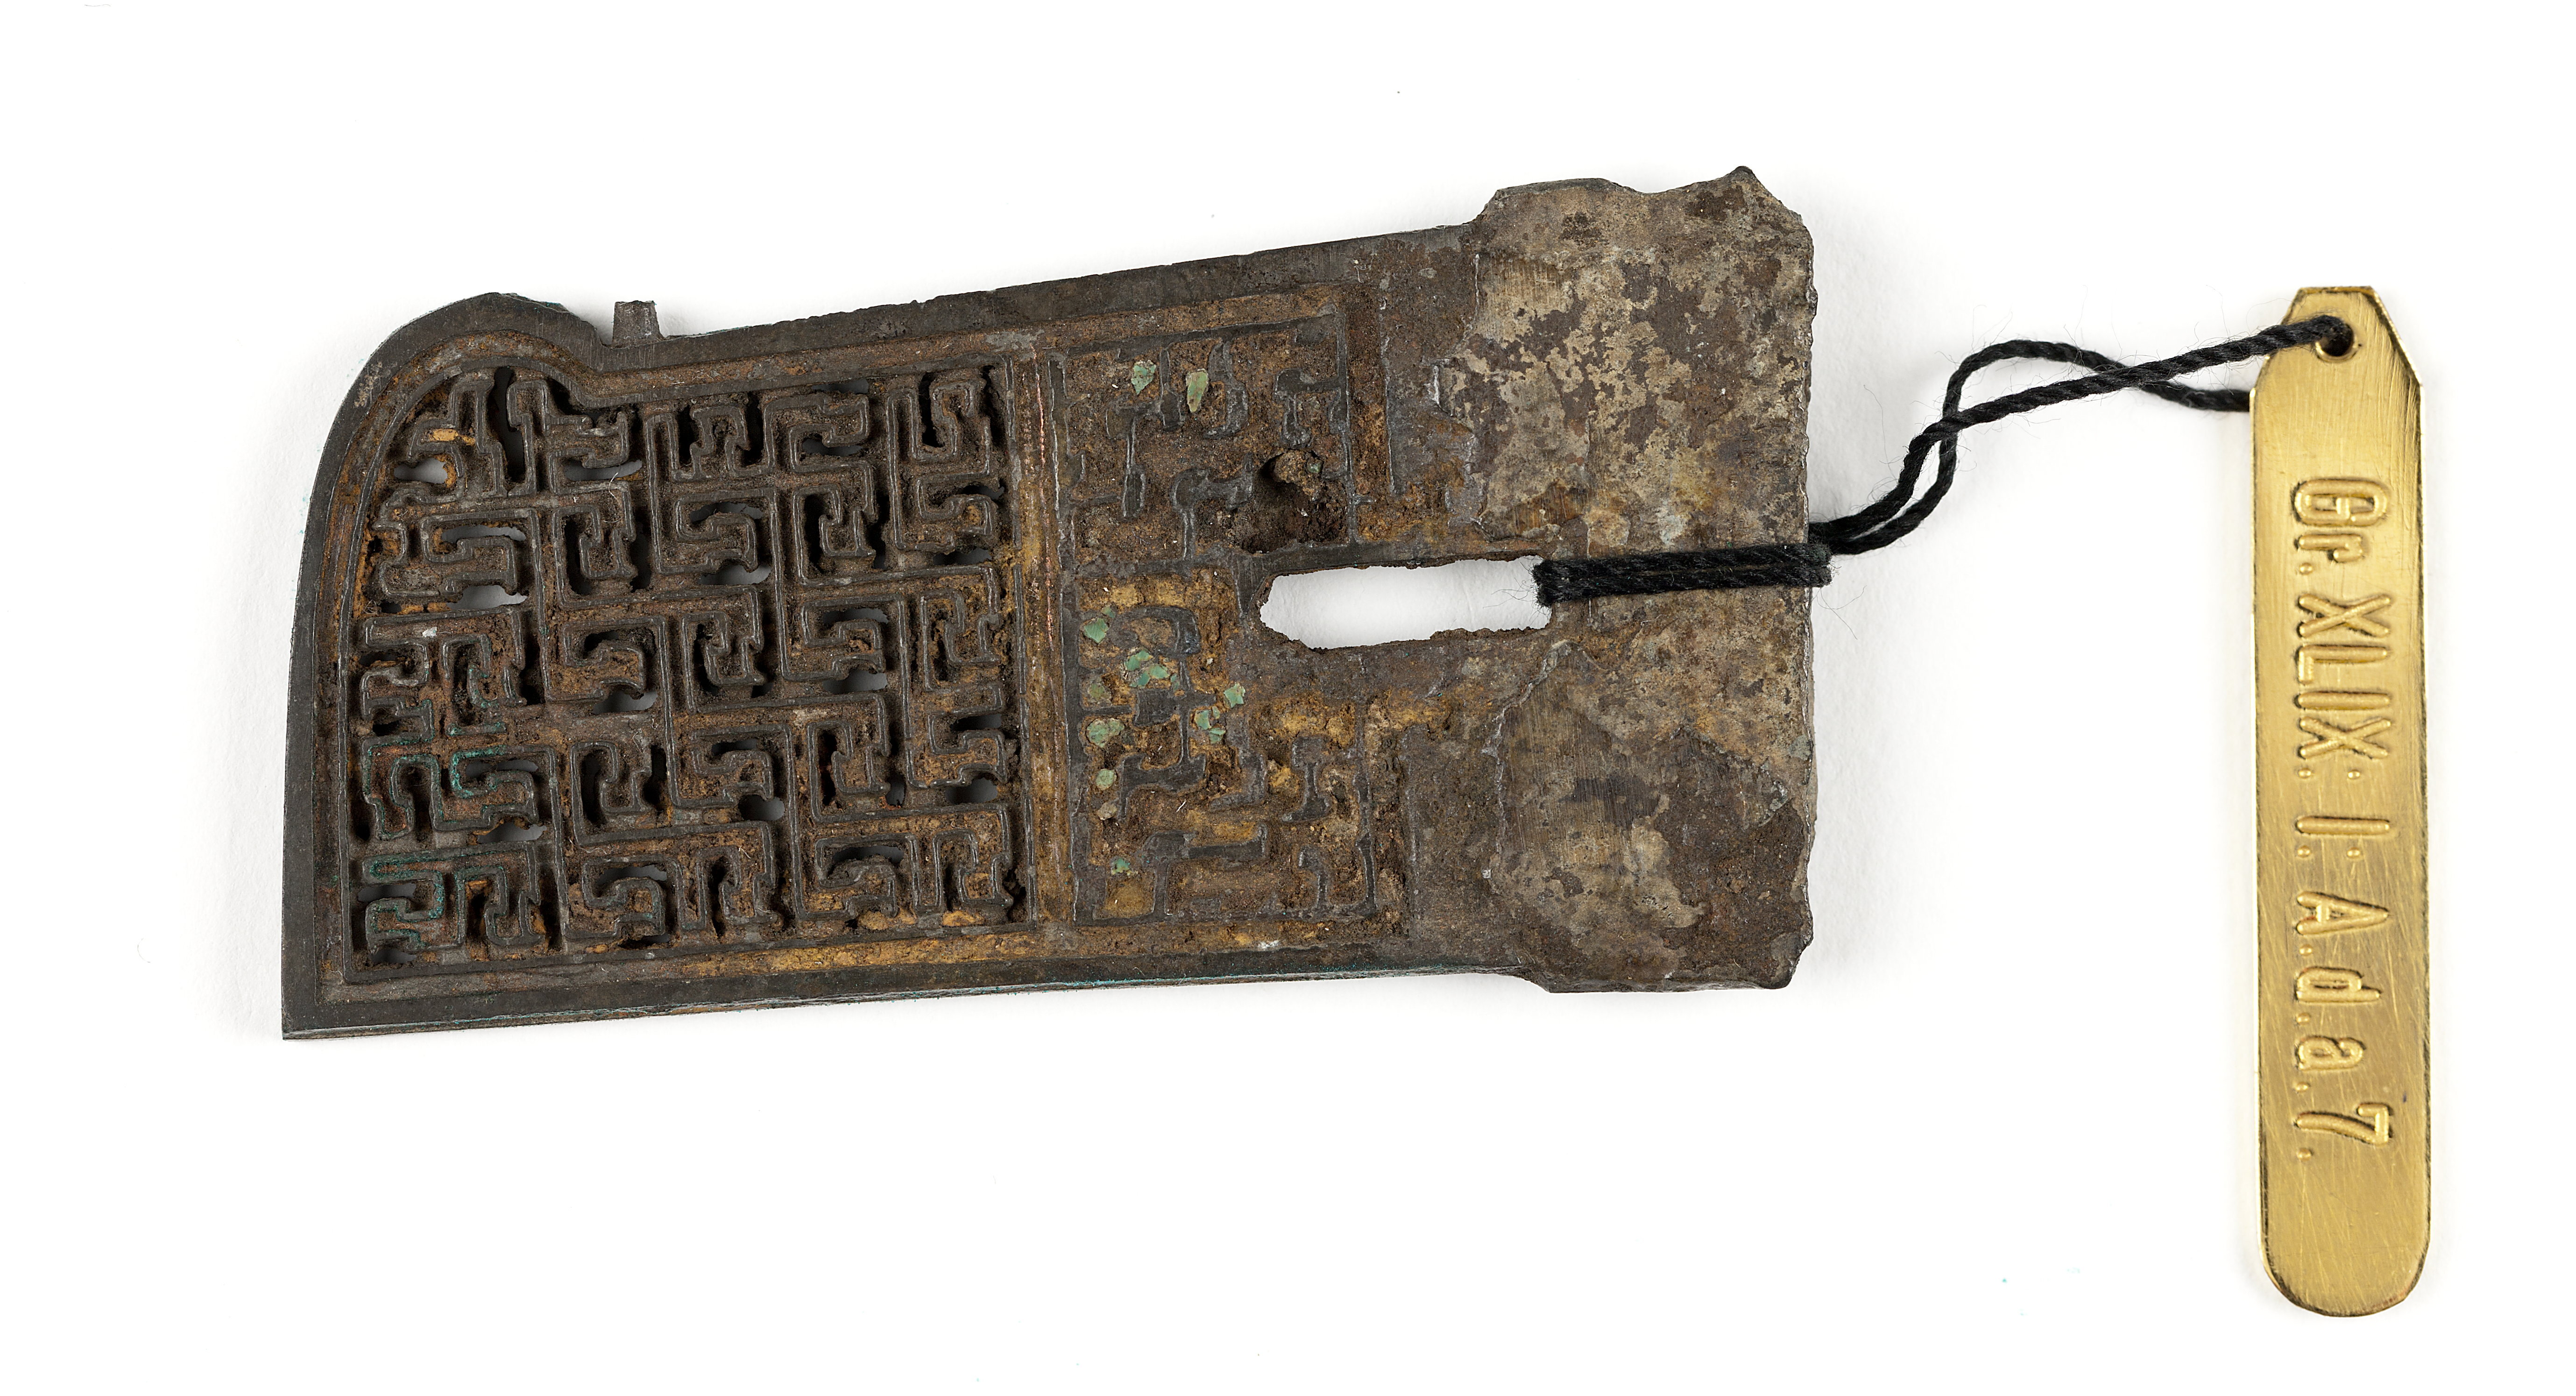 Gr. XLIX: I: A.d.a.7.